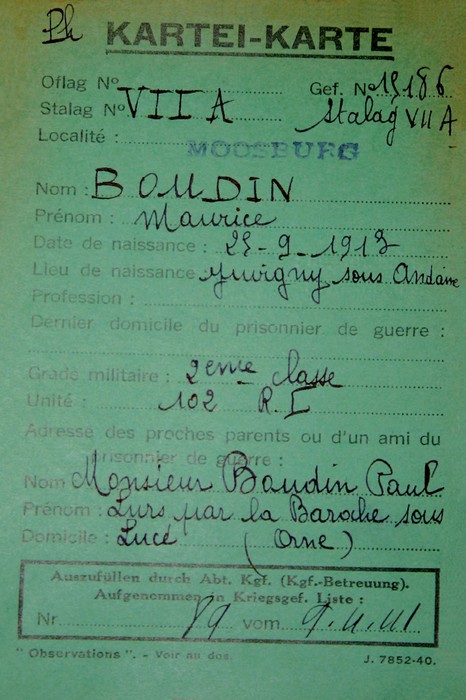 Ph KARTEI-KARTE
Oflag Nº Gef. Nº 15186
Stalag Nº VII A Stalag VII A
Localité : MOOSBURG
Nom : BOUDIN
Prénom : Maurice
Date de naissance : 25-9-1913
Lieu de naissance Juvigny sous Andaine
Profession :
Dernier domicile du prisonnier de guerre :
Grade militaire : 2eme classe
Unité : 102 R.I
Adresse des proches parents ou d'un ami du
prisonnier de guerre :
Nom Monsieur Boudin Paul
Prénom : par la Baroche sous
Domicile : Lucé (Orne)
Auszufüllen durch Abt. Kgf. (Kgf.-Betreuung).
Aufgenommen in Kriegsgef. Liste :
Nr. 89 vom
" Observations ". - Voir au dos. J. 7852-40.